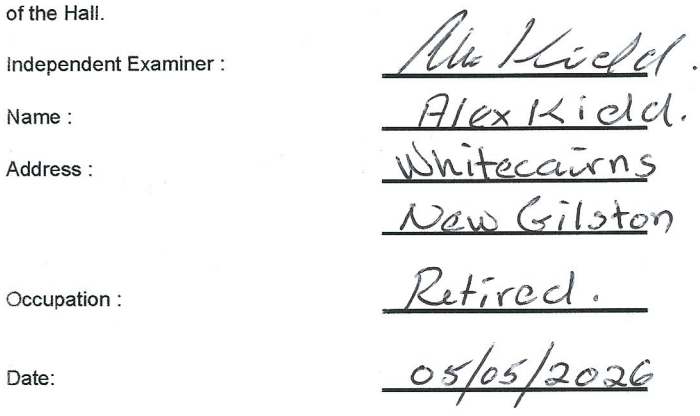 of the Hall.
Independent Examiner : Alex Kidd.
Name : Alex Kidd.
Address : Whitecairns
New Gilston
Occupation : Retired.
Date: 05/05/2026